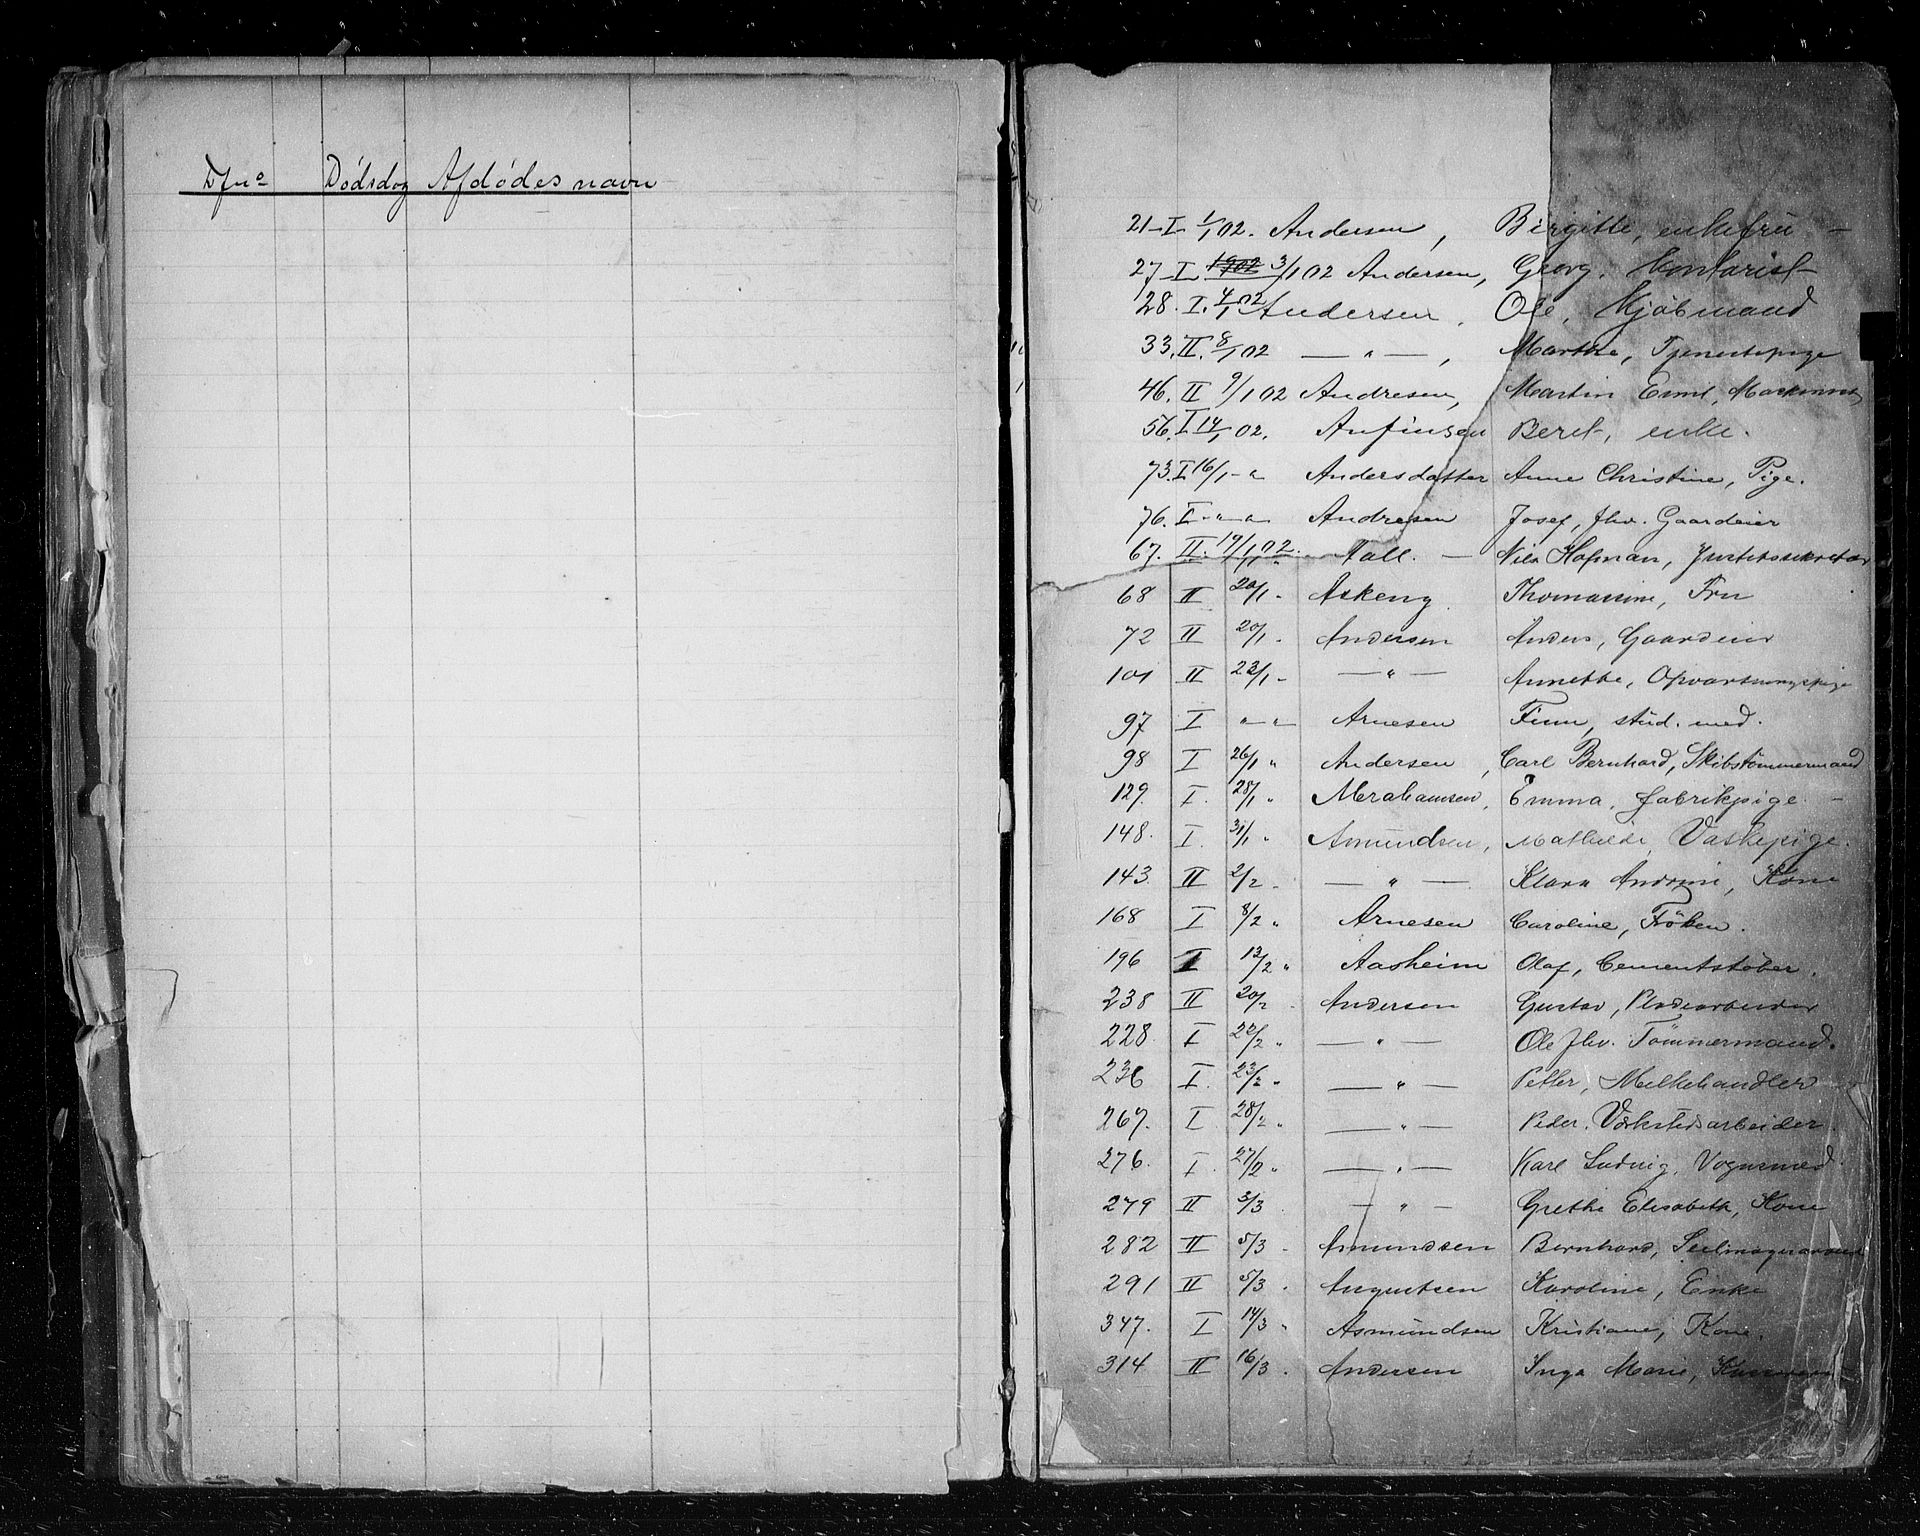 Dødsdag Afdødes navn
21-I 1/1 02. Andersen, Birgitte, enkefru -
27-I 1902 3/1 02 Andersen, Georg. Kontorist
28. I. 4/1 02 Andersen, Ole, Kjøbmand
33. II. 8/1 02 — " —, Marthe, Tjenestepige
46. II 9/1 02 Andresen, Martin Emil,
56. I 14/1 02. Anfinsen Beret, enke.
73. I 16/1 - " Andersdatter Anne Christine, Pige.
76. I - " - " Andresen Josef, fhv. Gaardeier
67. II. 19/1 02. Aall. — Niels Hofman, Justitssekretær
68 II 20/1 - Askeng. Thomassine, Fru
72 II 20/1 - Andersen Anders, Gaardeier
101 II 23/1 - — " — Annette, Opvartningspige
97 I " - " Arnesen Finn, stud. med.
98 I 26/1 " Andersen, Carl Bernhard, Skibstømmermand
129. I. 28/1 " Abrahamsen, Emma, fabrikpige. -
148. I. 31/1 " Amundsen, Mathilde, Vaskepige.
143 II 2/2 - — " — Klara Andrine, Kone
168 I 8/2 " Arnesen Caroline, Frøken.
196 I 12/2 " Aasheim Olaf, Cementstøber.
238 II 20/2 - Andersen Gustav, Pladsarbeider
228 I 22/2 " — " — Ole fhv. Tømmermand.
236 I. 23/2 " — " — Petter, Melkehandler
267. I 28/2 " — " — Peder. Værkstedsarbeider.
276. I. 27/2 " — " — Karl Ludvig, Vognmand.
279 II 3/3 — " — Grethe Elisabeth, Kone
282 II 5/3 - Amundsen Bernhard, Seilmagersvend
291 II 5/3 - Augustsen Karoline, Enke
347. I 14/3 " Asmundsen Kristiane, Kone.
314 II 16/3 . Andersen Inga Marie,